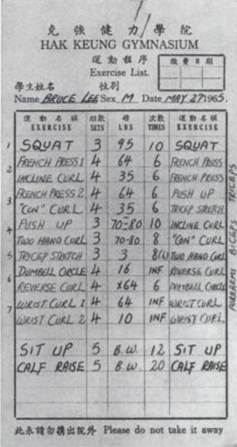 克強健力學院
HAK KEUNG GYMNASIUM
運動程序
Exercise List.
繳費日期
學生姓名 性別
Name BRUCE LEE Sex M Date MAY 27 1965.
運動名稱 EXERCISE 組數 SETS 磅 LBS 次數 TIMES 運動名稱 EXERCISE
1 SQUAT 3 95 10 SQUAT
2 FRENCH PRESS 1 4 64 6 FRENCH PRESS
INCLINE CURL 4 35 6 FRENCH PRESS
3 FRENCH PRESS 2 4 64 6 PUSH UP
"CON" CURL 4 35 6 TRICEP STRETCH
4 PUSH UP 3 70-80 10 INCLINE CURL
TWO HAND CURL 3 70-80 8 "CON" CURL
5 TRICEP STRETCH 3 3 TWO HAND CURL
DUMBELL CIRCLE 4 16 INF REVERSE CURL
6 REVERSE CURL 4 64 6 DUMBELL CIRCLE
7 WRIST CURL 1 4 64 INF WRIST CURL
WRIST CURL 2 4 10 INF WRIST CURL
SIT UP 5 B.W. 12 SIT UP
CALF RAISE 5 B.W. 20 CALF RAISE
TRICEPS
BICEPS
FOREARMS
此表請勿攜出院外 Please do not take it away